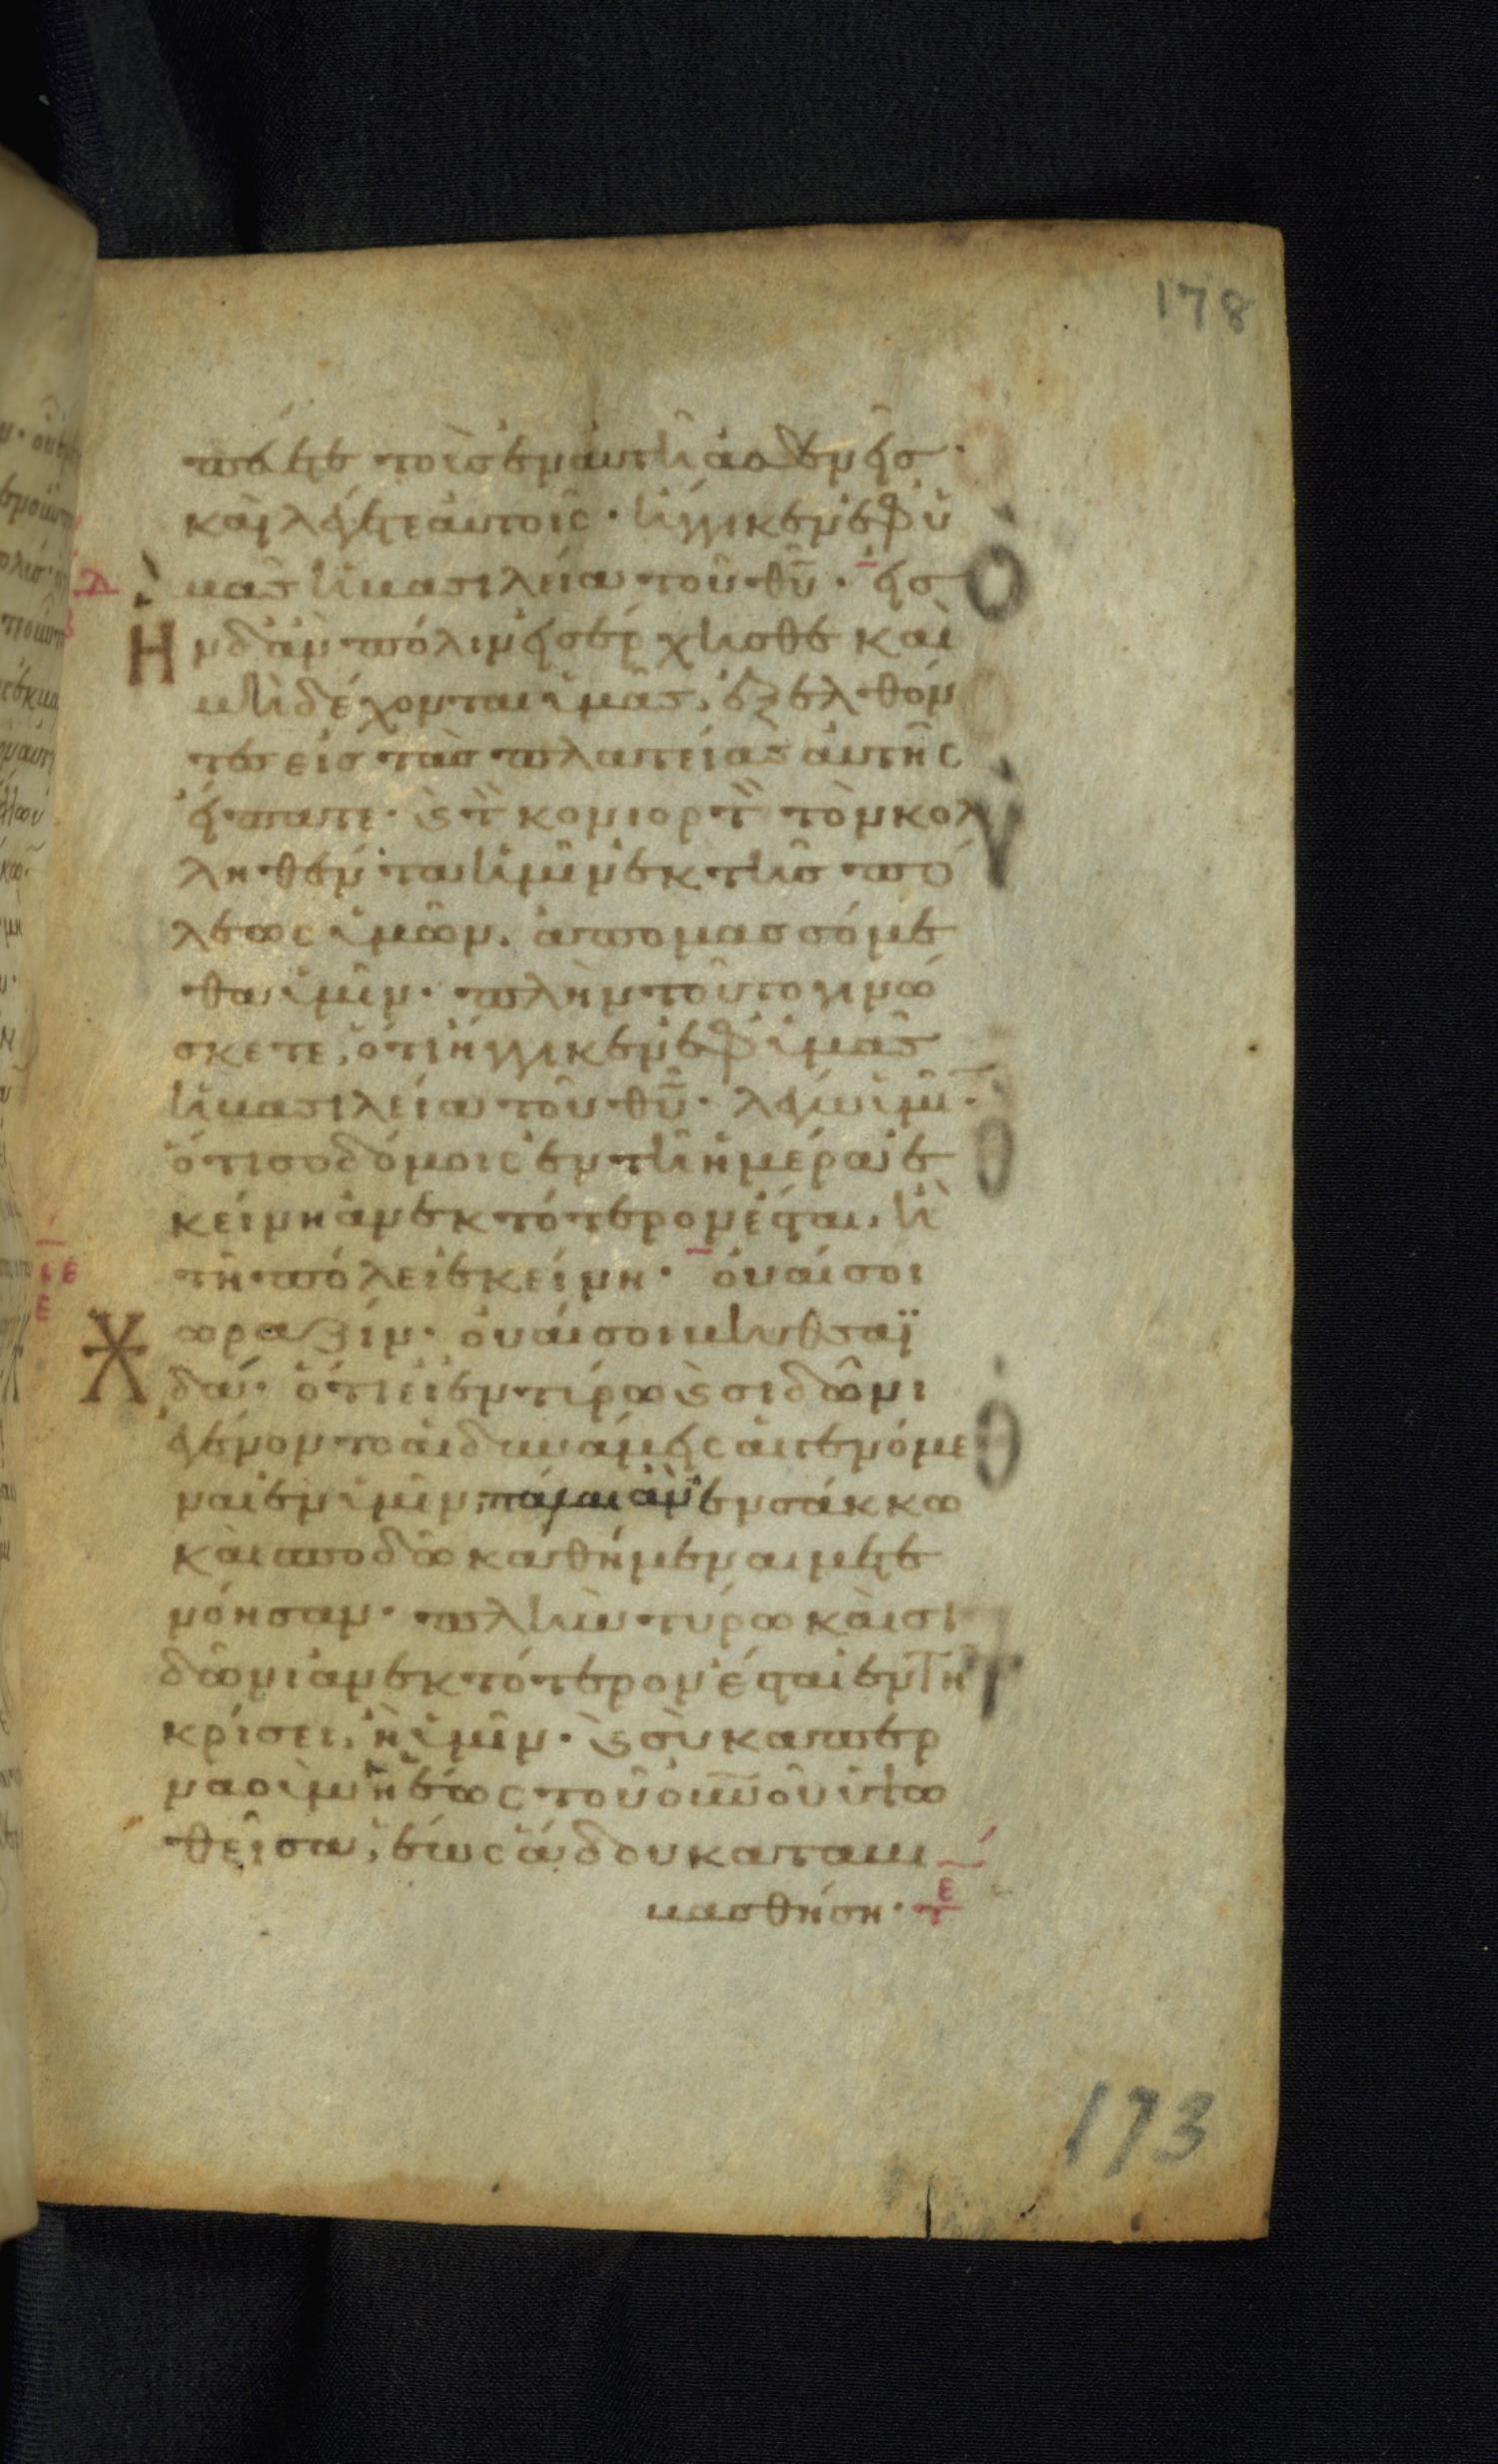 178
πεύετε τοὺσ ἐν ἀυτῆ ἀσθενεῖσ·
καὶ λέγετε ἀυτοῖς· ἤγγικεν ἐφ ὑ
μᾶσ ἡ βασιλεία τοῦ θῦ· εἰσ
Η ν δ ἀν πόλιν εἰσέρχησθε καὶ
μὴ δέχονται ὑμᾶσ, ἐξελθόν
τεσ εἰσ τὰσ πλατείασ ἀυτῆς
ἔιπατε· ϗ τ κονιορτ τὸν κολ
ληθέντα ἡμῖν ἐκ τῆσ πό
λεως ὑμῶν. ἀπομασσόμε
θα ὑμῖν· πλὴν τοῦτο γινώ
σκετε, ὅτι ἤγγικεν ἐφ ὑμᾶσ
ἡ βασιλεία τοῦ θῦ· λέγω ὑμῖ·
ὅτι σοδόμοις ἐν τῆ ἡμέρα ἐ
κείνη ἀνεκτότερον ἔσται, ἢ
τῆ πόλει ἐκείνη· ὀυαί σοι
Χ ωραζίν· ὀυαί σοι βηθσαϊ
δά· ὅτι εἰ ἐν τύρω ϗ σιδῶνι
ἐγένοντο ἁι δυνάμεις ἁι γενόμε
ναι ἐν ὑμῖν, πάλαι ἂν ἐν σάκκω
καὶ σποδῶ καθήμεναι μετε
νόησαν· πλὴν τύρω καὶ σι
δῶνι ἀνεκτότερον ἔσται ἐν τῆ
κρίσει, ἢ ὑμῖν· ϗ σὺ καπερ
ναοὺμ ἡ ἕως τοῦ ὀυνοῦ ὑψω
θεῖσα, ἕως ἅδου καταβι
βασθήση·
173